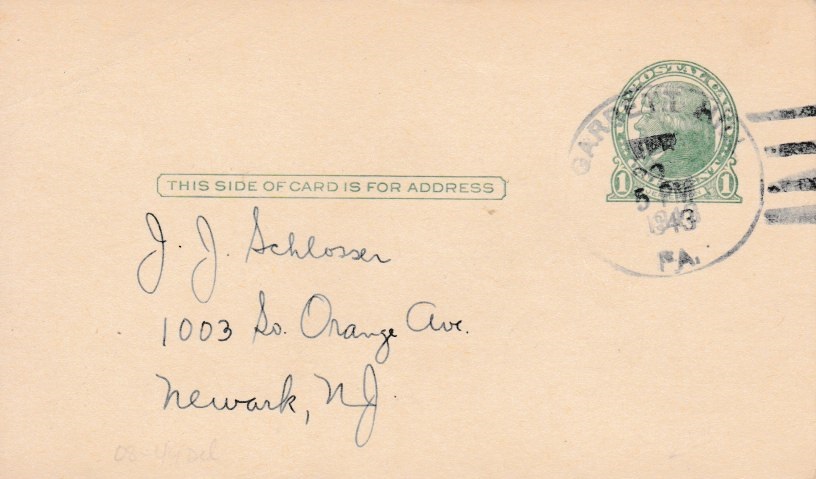 U.S. POSTAL CARD
GARRETT HILL
1 1
5 PM
1943
PA.
THIS SIDE OF CARD IS FOR ADDRESS
J. J. Schlosser
1003 So. Orange Ave.
Newark, NJ